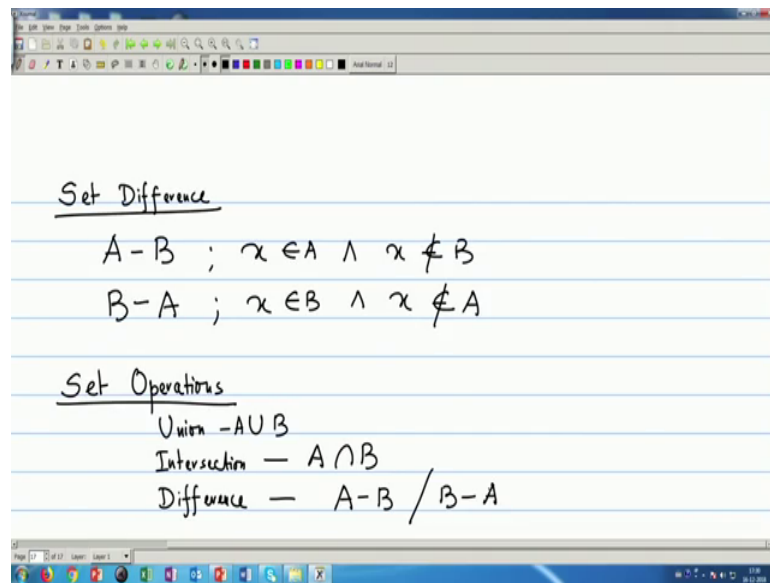 Journal
File Edit View Page Tools Options Help
Arial Normal 12
Set Difference
A - B ; x ∈ A ∧ x ∉ B
B - A ; x ∈ B ∧ x ∉ A
Set Operations
Union - A ∪ B
Intersection — A ∩ B
Difference — A - B / B - A
Page 17 of 17 Layer: Layer 1
17:30